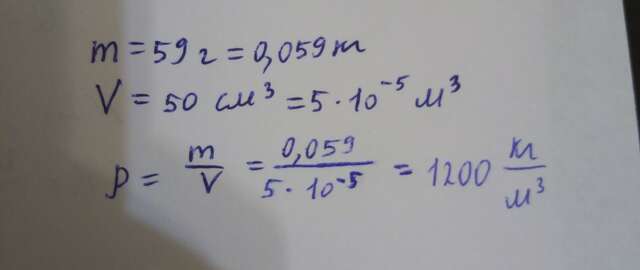 m = 59 г = 0,059 кг
V = 50 см³ = 5 · 10⁻⁵ м³
ρ = m/V = 0,059/5 · 10⁻⁵ = 1200 кг/м³